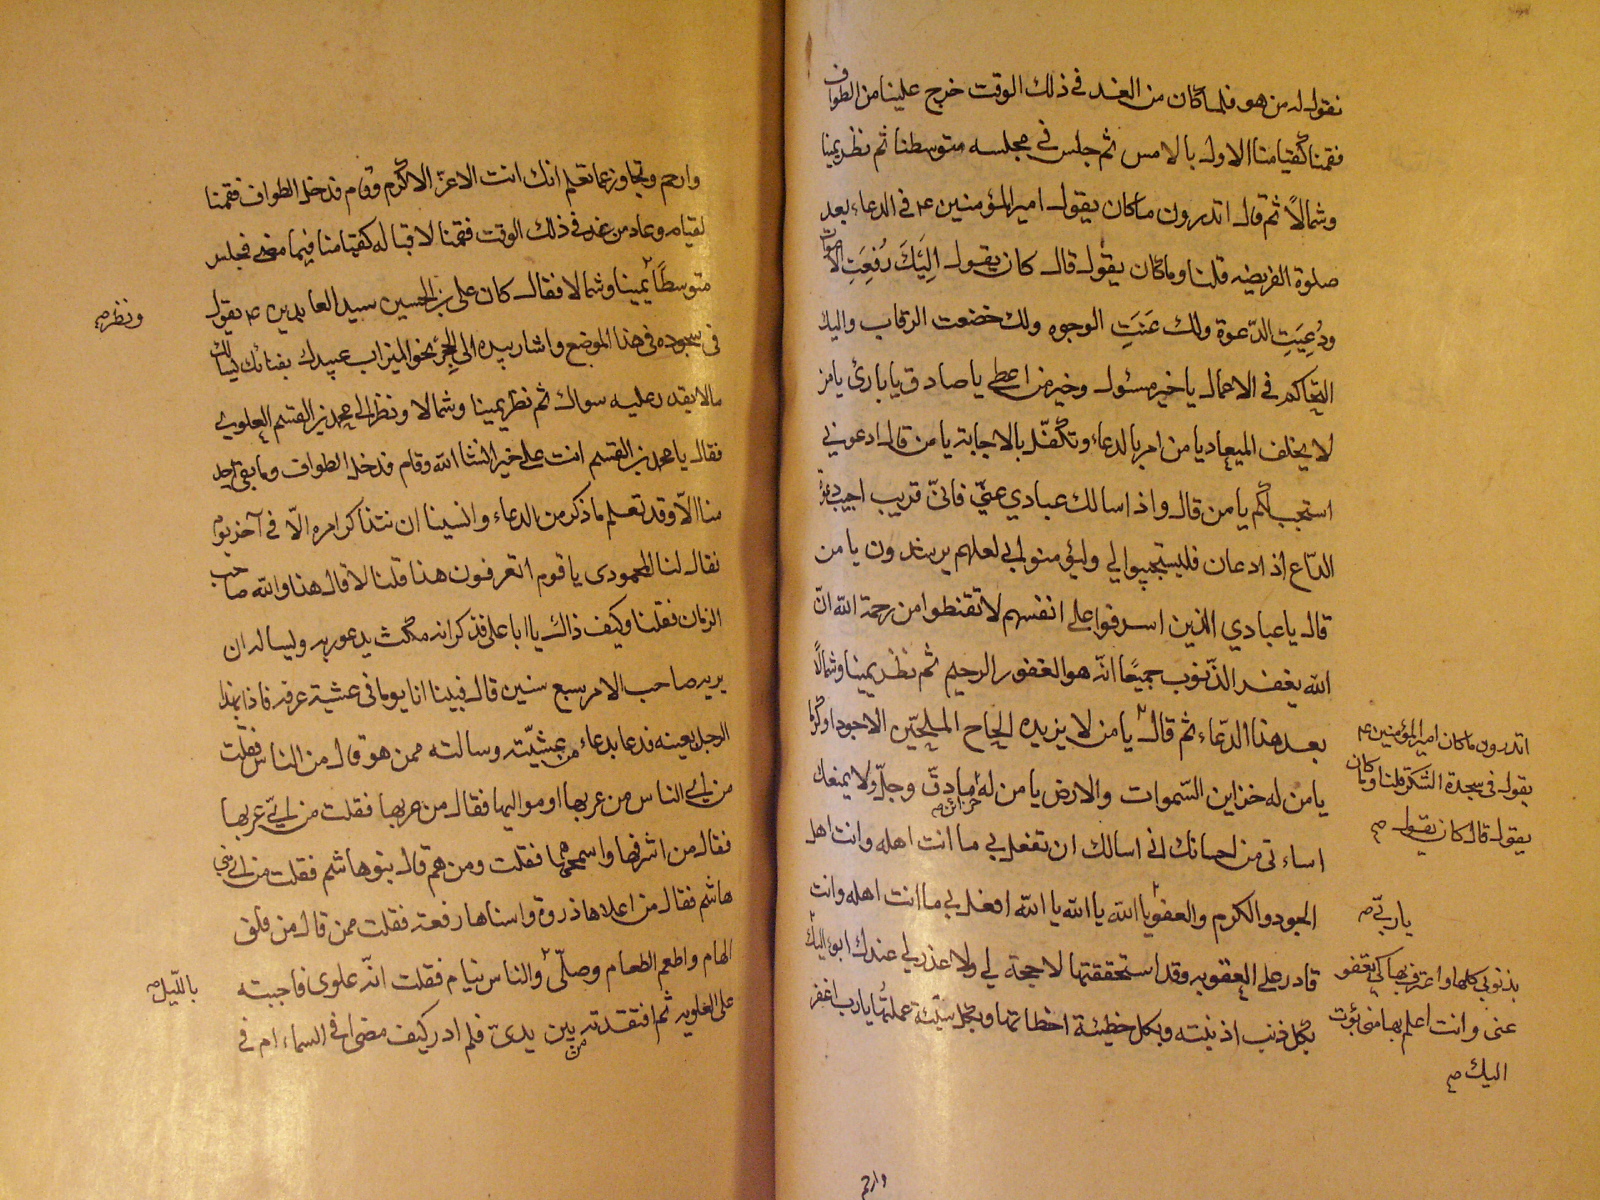 نقول له من هو فلما كان من الغد في ذلك الوقت خرج علينا من الطواف
فقمنا كقيامنا الاول بالامس ثم جلس في مجلسه متوسطنا ثم نظر يمينا
وشمالاً ثم قال اتدرون ما كان يقول امير المؤمنين ع في الدعاء بعد
صلوة الفريضه قلنا وما كان يقول قال كان يقول اِلَيكَ رُفِعَتِ الاصوات
ودُعِيَتِ الدّعوة ولك عَنَتِ الوجوه ولك خضعت الرقاب واليك
التحاكم في الاعمال يا خير مسئول وخير من اعطى يا صادق يا بارئ يا من
لا يخلف الميعاد يا من امر بالدعاء وتكفّل بالاجابة يا من قال ادعوني
استجب لكم يا من قال واذا سالك عبادي عنّي فانّي قريب اجيب دعوة
الدّاع اذا دعان فليستجيبوا لي وليؤمنوا بي لعلهم يرشدون يا من
قال يا عبادي الذين اسرفوا على انفسهم لا تقنطوا من رحمة الله انّ
الله يغفر الذّنوب جميعًا انّه هو الغفور الرحيم ثم نظر يمينا وشمالًا
بعد هذا الدّعاء ثم قال يا من لا يزيده الحاح الملحّين الا جودا وكرما
يا من له خزاين السّموات والارض يا من له خزائن ما دقّ وجلّ ولا يمنعك
اساءتي من احسانك اني اسالك ان تفعل بي ما انت اهله وانت اهل
الجود والكرم والعفو يا الله يا الله يا الله افعل بي ما انت اهله وانت
قادر على العقوبه وقد استحققتها لا حجة لي ولا عذر لي عندك ابوء اليك
بكل ذنب اذنبته وبكل خطيئة اخطاتها وبكل سيّئة عملتُها يا رب اغفر
اتدرون ما كان امير المؤمنين ع
يقول في سجدة الشكر قلنا وما كان
يقول قال كان يقول صح
يا ربّي صح
بذنوبي كلها واعترف بها كي تعفو
عني وانت اعلم بها مني بؤت
اليك صح
وارحم
وارحم وتجاوز عما تعلم انك انت الاعزّ الاكرم وقام فدخل الطواف فقمنا
لقيامه وعاد من غد في ذلك الوقت فقمنا لاقباله كقيامنا فيما مضى فجلس
متوسطًا يمينا وشمالا فقال كان علي بن الحسين سيد العابدين ع يقول
في سجوده في هذا الموضع واشار بيده الى الحِجر نحو الميزاب عبيدك بفنائك يسالك
ما لا يقدر عليه سواك ثم نظر يمينا وشمالا ونظر الى محمد بن القسم العلوي
فقال يا محمد بن القسم انت على خير انشا الله وقام فدخل الطواف وما بقي احد
منا الّا وقد تعلم ما ذكر من الدعاء وانسينا ان نتذاكر امره الّا في آخر يوم
فقال لنا المحمودى يا قوم اتعرفون هذا قلنا لا قال هذا والله صاحب
الزمان فقلنا وكيف ذاك يا ابا على فذكر انه مكث يدعو ربه ويساله ان
يريه صاحب الامر سبع سنين قال فبينا انا يوما في عشية عرفه فاذا بهذا
الرجل بعينه فدعا بدعاء من عشيّته وسالته ممن هو قال من الناس فقلت
من اي الناس من عربها او مواليها فقال من عربها فقلت من ايّ عربها
فقال من اشرفها واسمحها فقلت ومن هم قال بنو هاشم فقلت من اي بني
هاشم فقال من اعلاها ذروة واسناها رفعة فقلت ممن قال من فلق
الهام واطعم الطعام وصلّى والناس نيام فقلت انّه علوى فاحببته
على العلويه ثم افتقدته من بين يديّ فلم ادر كيف مضى افي السماء ام في
ونظر صح
بالليل صح